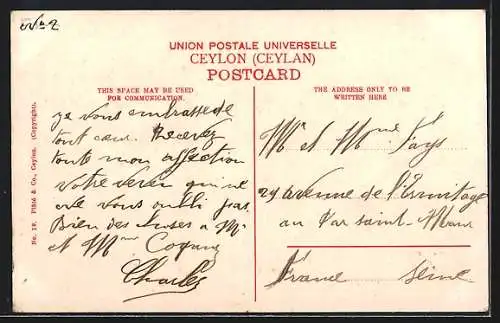 No 2
UNION POSTALE UNIVERSELLE
CEYLON (CEYLAN)
POSTCARD
THIS SPACE MAY BE USED
FOR COMMUNICATION.
THE ADDRESS ONLY TO BE
WRITTEN HERE
No. 12. Plâté & Co., Ceylon. (Copyright).
je vous embrasse de
tout cœur. Recevez
toute mon affection
votre neveu qui ne
vous oubli pas
Bien des choses a Mr
et Mme
Charles
Mr et Mme Fays
29 avenue de l'Ermitage
au Par saint-Maur
France Seine